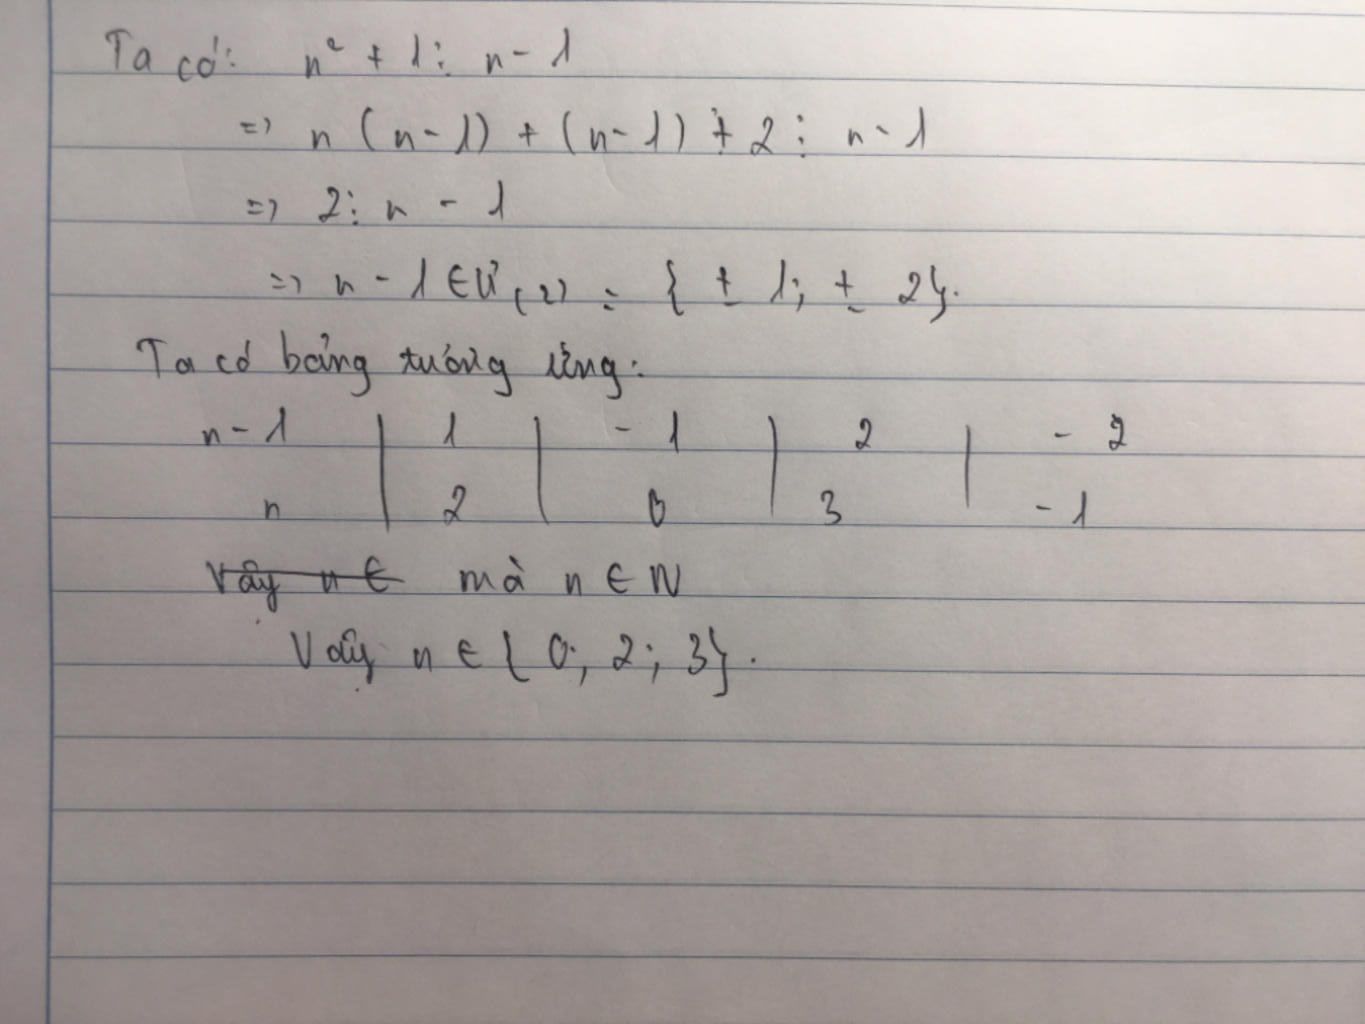 Ta có: n² + 1 ⋮ n - 1
=> n (n - 1) + (n - 1) + 2 ⋮ n - 1
=> 2 ⋮ n - 1
=> n - 1 ∈ Ư(2) = { ± 1; ± 2}.
Ta có bảng tương ứng:
n - 1 | 1 | - 1 | 2 | - 2
n | 2 | 0 | 3 | - 1
Vậy n ∈ mà n ∈ N
Vậy n ∈ { 0; 2; 3}.